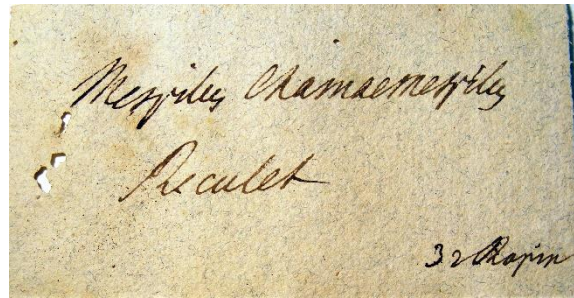 Mespilus Chamaemespilus
Reculet
32 Rapin